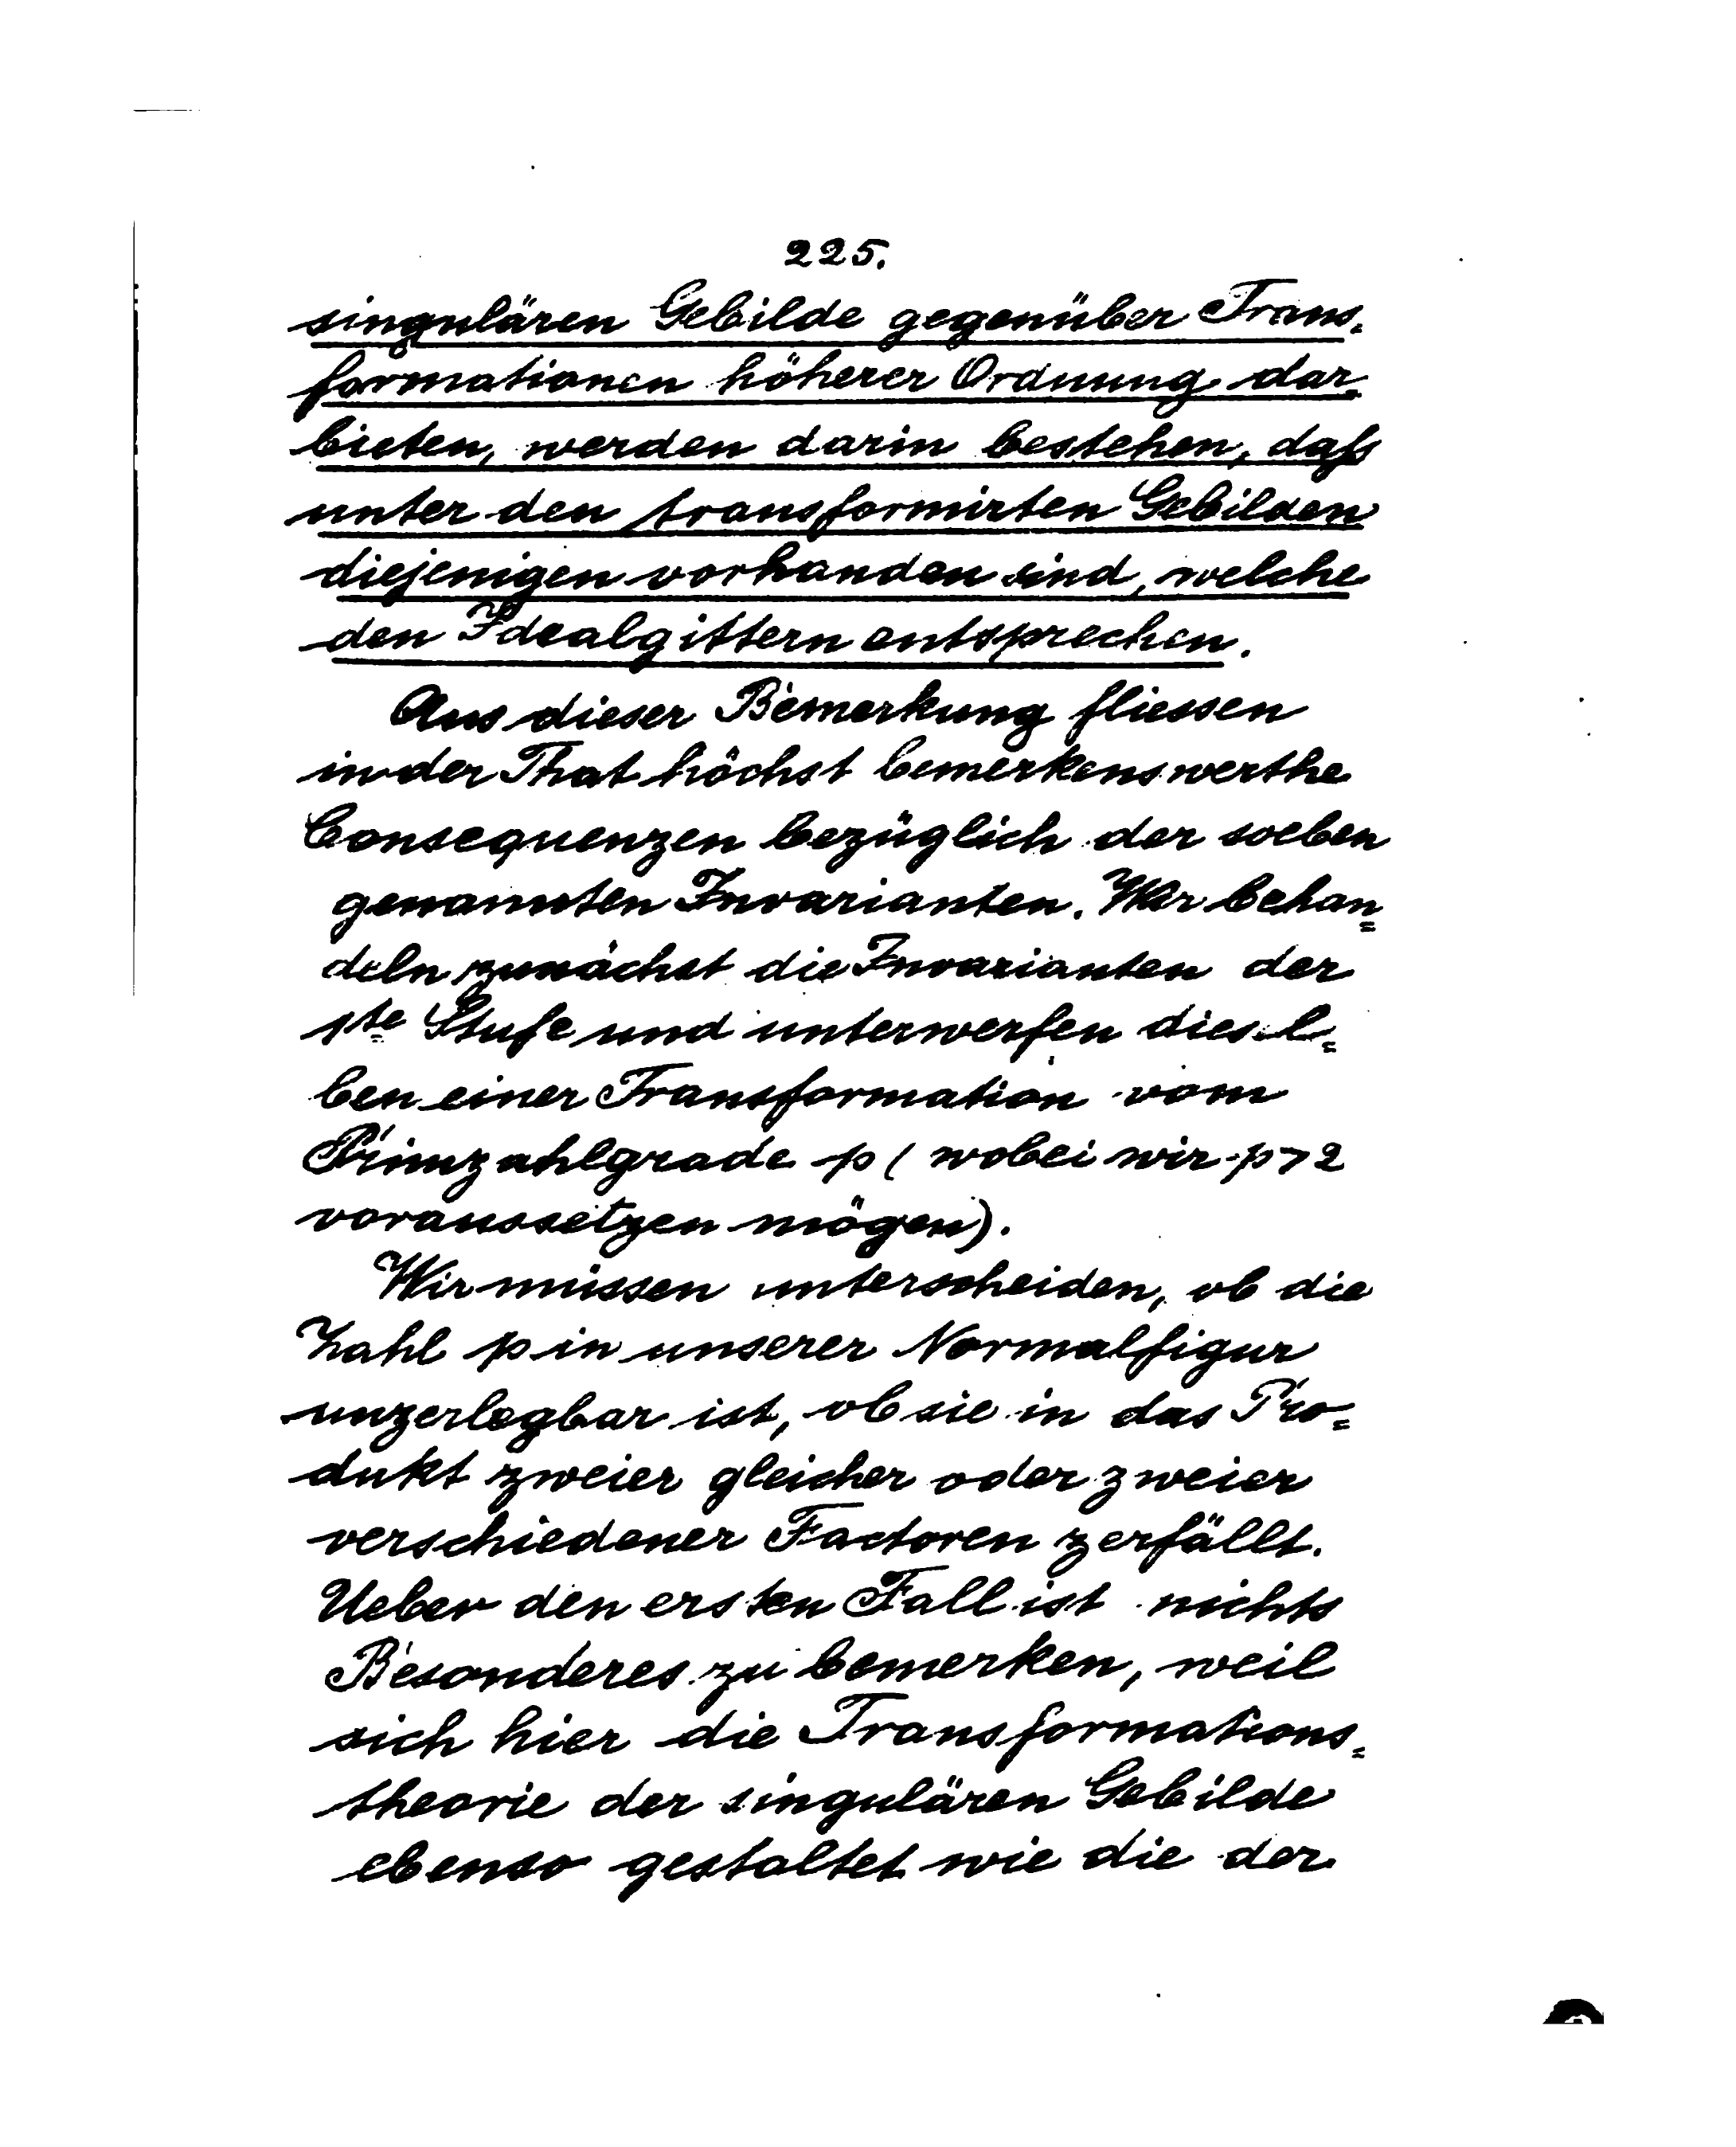 225.
singulären Gebilde gegenüber Trans=
formationen höherer Ordnung dar=
bieten, werden darin bestehen, daß
unter den transformirten Gebilden
diejenigen vorhanden sind, welche
den Idealgittern entsprechen.
Aus dieser Bemerkung fliessen
in der That höchst bemerkenswerthe
Consequenzen bezüglich der soeben
genannten Invarianten. Wir behan=
deln zunächst die Invarianten der
1te Stufe und unterwerfen diesel=
ben einer Transformation vom
Primzahlgrade p (wobei wir p>2
voraussetzen mögen).
Wir müssen unterscheiden, ob die
Zahl p in unserer Normalfigur
unzerlegbar ist, ob sie in das Pro=
dukt zweier gleicher oder zweier
verschiedener Factoren zerfällt.
Ueber den ersten Fall ist nichts
Besonderes zu bemerken, weil
sich hier die Transformations=
theorie der singulären Gebilde
ebenso gestaltet wie die der